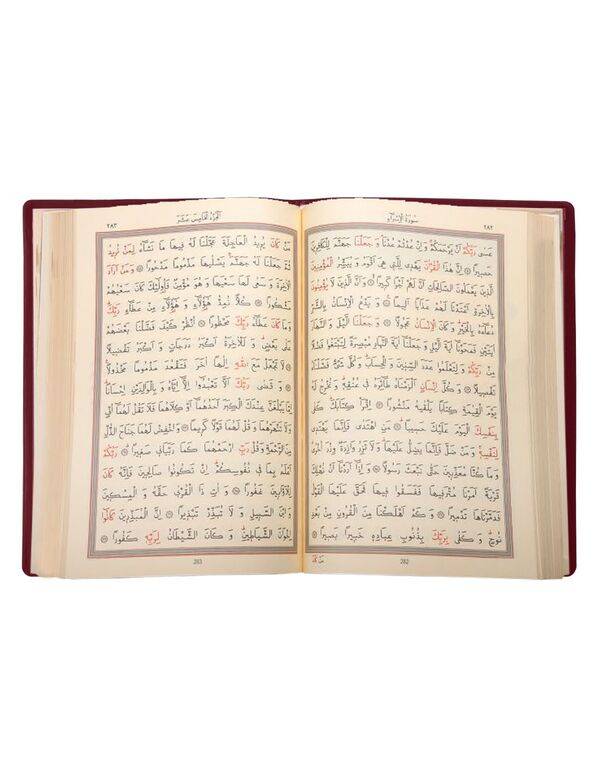 سُورَةُ الْاِسْرَاءِ
٢٨٢
عَسٰى رَبُّكُمْ اَنْ يَرْحَمَكُمْ وَ اِنْ عُدْتُمْ عُدْنَا وَ جَعَلْنَا جَهَنَّمَ لِلْكَافِرِينَ
حَصِيرًا ۝ اِنَّ هٰذَا الْقُرْاٰنَ يَهْدِى لِلَّتِى هِىَ اَقْوَمُ وَ يُبَشِّرُ الْمُؤْمِنِينَ
الَّذِينَ يَعْمَلُونَ الصَّالِحَاتِ اَنَّ لَهُمْ اَجْرًا كَبِيرًا ۝ وَ اَنَّ الَّذِينَ لَا يُؤْمِنُونَ
بِالْاٰخِرَةِ اَعْتَدْنَا لَهُمْ عَذَابًا اَلِيمًا ۝ وَ يَدْعُ الْاِنْسَانُ بِالشَّرِّ
دُعَاءَهُ بِالْخَيْرِ وَ كَانَ الْاِنْسَانُ عَجُولًا ۝ وَ جَعَلْنَا الَّيْلَ وَ النَّهَارَ
اٰيَتَيْنِ فَمَحَوْنَا اٰيَةَ الَّيْلِ وَ جَعَلْنَا اٰيَةَ النَّهَارِ مُبْصِرَةً لِتَبْتَغُوا فَضْلًا
مِنْ رَبِّكُمْ وَ لِتَعْلَمُوا عَدَدَ السِّنِينَ وَ الْحِسَابَ وَ كُلَّ شَىْءٍ فَصَّلْنَاهُ
تَفْصِيلًا ۝ وَ كُلَّ اِنْسَانٍ اَلْزَمْنَاهُ طَائِرَهُ فِى عُنُقِهِ وَ نُخْرِجُ لَهُ
يَوْمَ الْقِيٰمَةِ كِتَابًا يَلْقٰيهُ مَنْشُورًا ۝ اِقْرَأْ كِتَابَكَ كَفٰى
بِنَفْسِكَ الْيَوْمَ عَلَيْكَ حَسِيبًا ۝ مَنِ اهْتَدٰى فَاِنَّمَا يَهْتَدِى
لِنَفْسِهِ وَ مَنْ ضَلَّ فَاِنَّمَا يَضِلُّ عَلَيْهَا وَ لَا تَزِرُ وَازِرَةٌ وِزْرَ اُخْرٰى
وَ مَا كُنَّا مُعَذِّبِينَ حَتّٰى نَبْعَثَ رَسُولًا ۝ وَ اِذَا اَرَدْنَا اَنْ نُهْلِكَ
قَرْيَةً اَمَرْنَا مُتْرَفِيهَا فَفَسَقُوا فِيهَا فَحَقَّ عَلَيْهَا الْقَوْلُ
فَدَمَّرْنَاهَا تَدْمِيرًا ۝ وَ كَمْ اَهْلَكْنَا مِنَ الْقُرُونِ مِنْ بَعْدِ
نُوحٍ وَ كَفٰى بِرَبِّكَ بِذُنُوبِ عِبَادِهِ خَبِيرًا بَصِيرًا ۝
مَنْ كَانَ
282
اَلْجُزْءُ الْخَامِسَ عَشَرَ
٢٨٣
مَنْ كَانَ يُرِيدُ الْعَاجِلَةَ عَجَّلْنَا لَهُ فِيهَا مَا نَشَاءُ لِمَنْ نُرِيدُ
ثُمَّ جَعَلْنَا لَهُ جَهَنَّمَ يَصْلٰيهَا مَذْمُومًا مَدْحُورًا ۝ وَ مَنْ اَرَادَ
الْاٰخِرَةَ وَ سَعٰى لَهَا سَعْيَهَا وَ هُوَ مُؤْمِنٌ فَاُولٰئِكَ كَانَ سَعْيُهُمْ
مَشْكُورًا ۝ كُلًّا نُمِدُّ هٰؤُلَاءِ وَ هٰؤُلَاءِ مِنْ عَطَاءِ رَبِّكَ
وَ مَا كَانَ عَطَاءُ رَبِّكَ مَحْظُورًا ۝ اُنْظُرْ كَيْفَ فَضَّلْنَا بَعْضَهُمْ
عَلٰى بَعْضٍ وَ لَلْاٰخِرَةُ اَكْبَرُ دَرَجَاتٍ وَ اَكْبَرُ تَفْضِيلًا
۝ لَا تَجْعَلْ مَعَ اللّٰهِ اِلٰهًا اٰخَرَ فَتَقْعُدَ مَذْمُومًا مَخْذُولًا
۝ وَ قَضٰى رَبُّكَ اَلَّا تَعْبُدُوا اِلَّا اِيَّاهُ وَ بِالْوَالِدَيْنِ اِحْسَانًا
اِمَّا يَبْلُغَنَّ عِنْدَكَ الْكِبَرَ اَحَدُهُمَا اَوْ كِلَاهُمَا فَلَا تَقُلْ لَهُمَا اُفٍّ
وَ لَا تَنْهَرْهُمَا وَ قُلْ لَهُمَا قَوْلًا كَرِيمًا ۝ وَ اخْفِضْ لَهُمَا جَنَاحَ الذُّلِّ
مِنَ الرَّحْمَةِ وَ قُلْ رَبِّ ارْحَمْهُمَا كَمَا رَبَّيَانِى صَغِيرًا ۝ رَبُّكُمْ
اَعْلَمُ بِمَا فِى نُفُوسِكُمْ اِنْ تَكُونُوا صَالِحِينَ فَاِنَّهُ كَانَ
لِلْاَوَّابِينَ غَفُورًا ۝ وَ اٰتِ ذَا الْقُرْبٰى حَقَّهُ وَ الْمِسْكِينَ
وَ ابْنَ السَّبِيلِ وَ لَا تُبَذِّرْ تَبْذِيرًا ۝ اِنَّ الْمُبَذِّرِينَ كَانُوا
اِخْوَانَ الشَّيَاطِينِ وَ كَانَ الشَّيْطَانُ لِرَبِّهِ كَفُورًا ۝
283